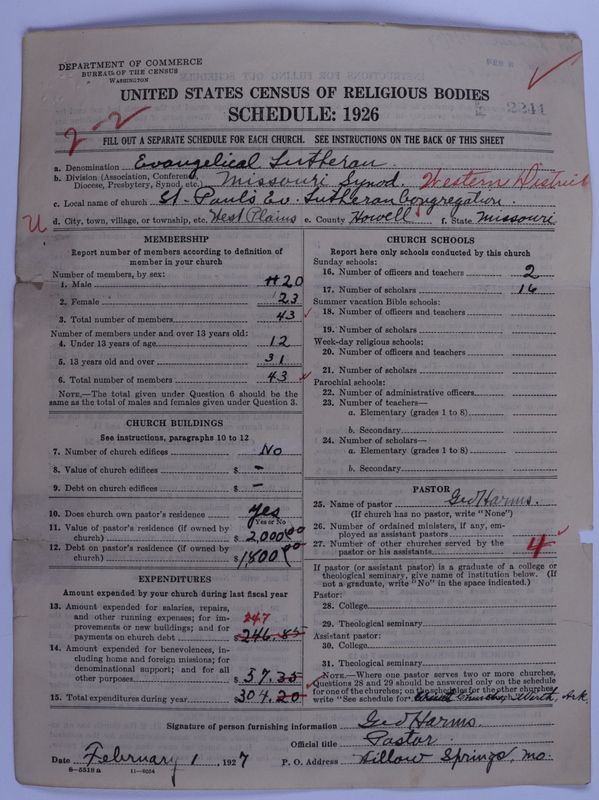 DEPARTMENT OF COMMERCE
BUREAU OF THE CENSUS
WASHINGTON
UNITED STATES CENSUS OF RELIGIOUS BODIES
SCHEDULE: 1926
2241
2-2
FILL OUT A SEPARATE SCHEDULE FOR EACH CHURCH. SEE INSTRUCTIONS ON THE BACK OF THIS SHEET
a. Denomination Evangelical Lutheran
b. Division (Association, Conference, Diocese, Presbytery, Synod, etc.) Missouri Synod. Western District
c. Local name of church St. Paul's Ev. Lutheran Congregation.
U
d. City, town, village, or township, etc. West Plains e. County Howell f. State Missouri
MEMBERSHIP
Report number of members according to definition of
member in your church
Number of members, by sex:
1. Male 20
2. Female 23
3. Total number of members 43
Number of members under and over 13 years old:
4. Under 13 years of age 12
5. 13 years old and over 31
6. Total number of members 43
NOTE.—The total given under Question 6 should be
same as the total of males and females given under Question 3.
CHURCH BUILDINGS
See instructions, paragraphs 10 to 12
7. Number of church edifices No
8. Value of church edifices $ –
9. Debt on church edifices $ –
10. Does church own pastor's residence yes
Yes or No
11. Value of pastor's residence (if owned by
church) $ 2,000.00
12. Debt on pastor's residence (if owned by
church) $ 1,800.00
EXPENDITURES
Amount expended by your church during last fiscal year
13. Amount expended for salaries, repairs,
and other running expenses; for im-
provements or new buildings; and for
payments on church debt $ 246.85
247
14. Amount expended for benevolences, in-
cluding home and foreign missions; for
denominational support; and for all
other purposes $ 57.35
15. Total expenditures during year $ 304.20
CHURCH SCHOOLS
Report here only schools conducted by this church
Sunday schools:
16. Number of officers and teachers 2
17. Number of scholars 16
Summer vacation Bible schools:
18. Number of officers and teachers
19. Number of scholars
Week-day religious schools:
20. Number of officers and teachers
21. Number of scholars
Parochial schools:
22. Number of administrative officers
23. Number of teachers—
a. Elementary (grades 1 to 8)
b. Secondary
24. Number of scholars—
a. Elementary (grades 1 to 8)
b. Secondary
PASTOR
25. Name of pastor Geo Harms.
(If church has no pastor, write "None")
26. Number of ordained ministers, if any, em-
ployed as assistant pastors
27. Number of other churches served by the
pastor or his assistants 4
If pastor (or assistant pastor) is a graduate of a college or
theological seminary, give name of institution below. (If
not a graduate, write "No" in the space indicated.)
Pastor:
28. College
29. Theological seminary
Assistant pastor:
30. College
31. Theological seminary
NOTE.—Where one pastor serves two or more churches,
Questions 28 and 29 should be answered only on the schedule
for one of the churches; on the schedules for the other churches
write "See schedule for Church, Ark.
Signature of person furnishing information Geo Harms.
Official title Pastor.
Date February 1, 1927 P. O. Address Willow Springs, Mo.
8-5518 a 11-9054